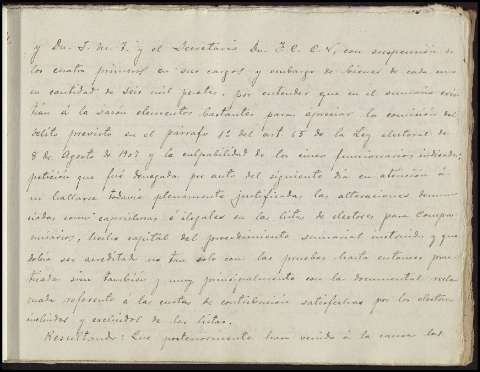 y Dn. J. M. J. y el Secretario Dn. F. C. C. N, con suspensión de
los cuatro primeros en sus cargos y embargo de bienes de cada uno
en cantidad de seis mil pesetas, por entender que en el sumario exis
tían á la sazón elementos bastantes para apreciar la comisión del
delito previsto en el párrafo 1º del art 65 de la Ley electoral de
8 de Agosto de 1907 y la culpabilidad de los cinco funcionarios indicados;
petición que fué denegada por auto del siguiente día en atención á
no hallarse todavía plenamente justificadas las alteraciones denun
ciadas como caprichosas é ilegales en las listas de electores para compro
misarios, hecho capital del procedimiento sumarial instruido y que
debía ser acreditado no tan solo con las pruebas hasta entonces prac
ticadas sino también y muy principalmente con la documental recla
mada referente á las cuotas de contribución satisfechas por los electores
incluidos y excluidos de las listas.
Resultando: Que posteriormente han venido á la causa las